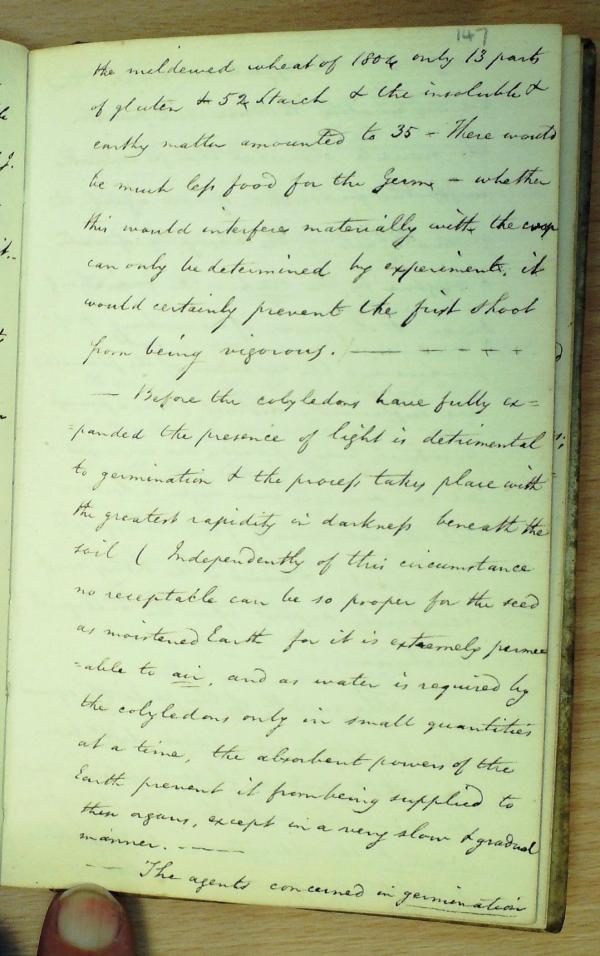 147
the mildewed wheat of 1804 only 13 parts
of gluten & 52 starch & the insoluble &
earthy matter amounted to 35 - There would
be much less food for the Germ - whether
this would interfere materially with the crop
can only be determined by experiments, it
would certainly prevent the first shoot
from being vigorous. — - - - -
— Before the cotyledons have fully ex=
=panded the presence of light is detrimental
to germination & the process takes place with
the greatest rapidity in darkness beneath the
soil ( Independently of this circumstance
no receptacle can be so proper for the seed
as moistened Earth for it is extremely perme
=able to air, and as water is required by
the cotyledons only in small quantities
at a time, the absorbent powers of the
Earth prevent it from being supplied to
these organs, except in a very slow & gradual
manner. - —
— The agents concerned in germination